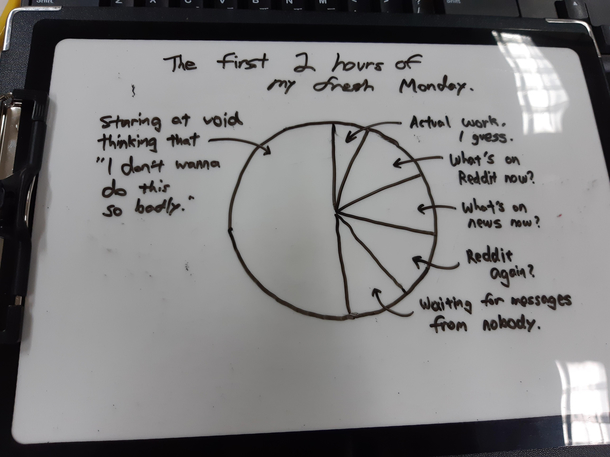 The first 2 hours of
my fresh Monday.
Staring at void
thinking that
"I don't wanna
do this
so badly."
Actual work.
I guess.
What's on
Reddit now?
What's on
news now?
Reddit
again?
Waiting for messages
from nobody.